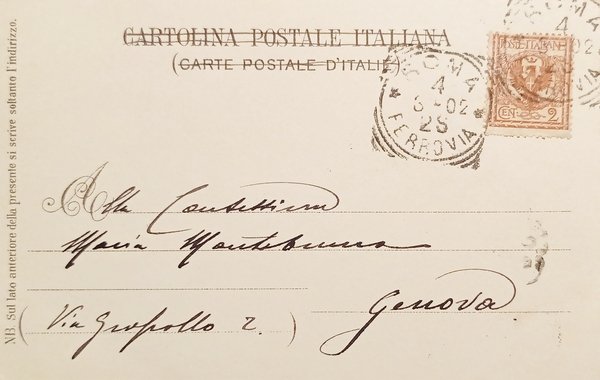 CARTOLINA POSTALE ITALIANA
(CARTE POSTALE D'ITALIE)
ROMA
4
6-02
2S
FERROVIA
POSTE ITALIANE
CEN. 2
NB. Sul lato anteriore della presente si scrive soltanto l'indirizzo.
Alla
Maria
Via 2.
Genova